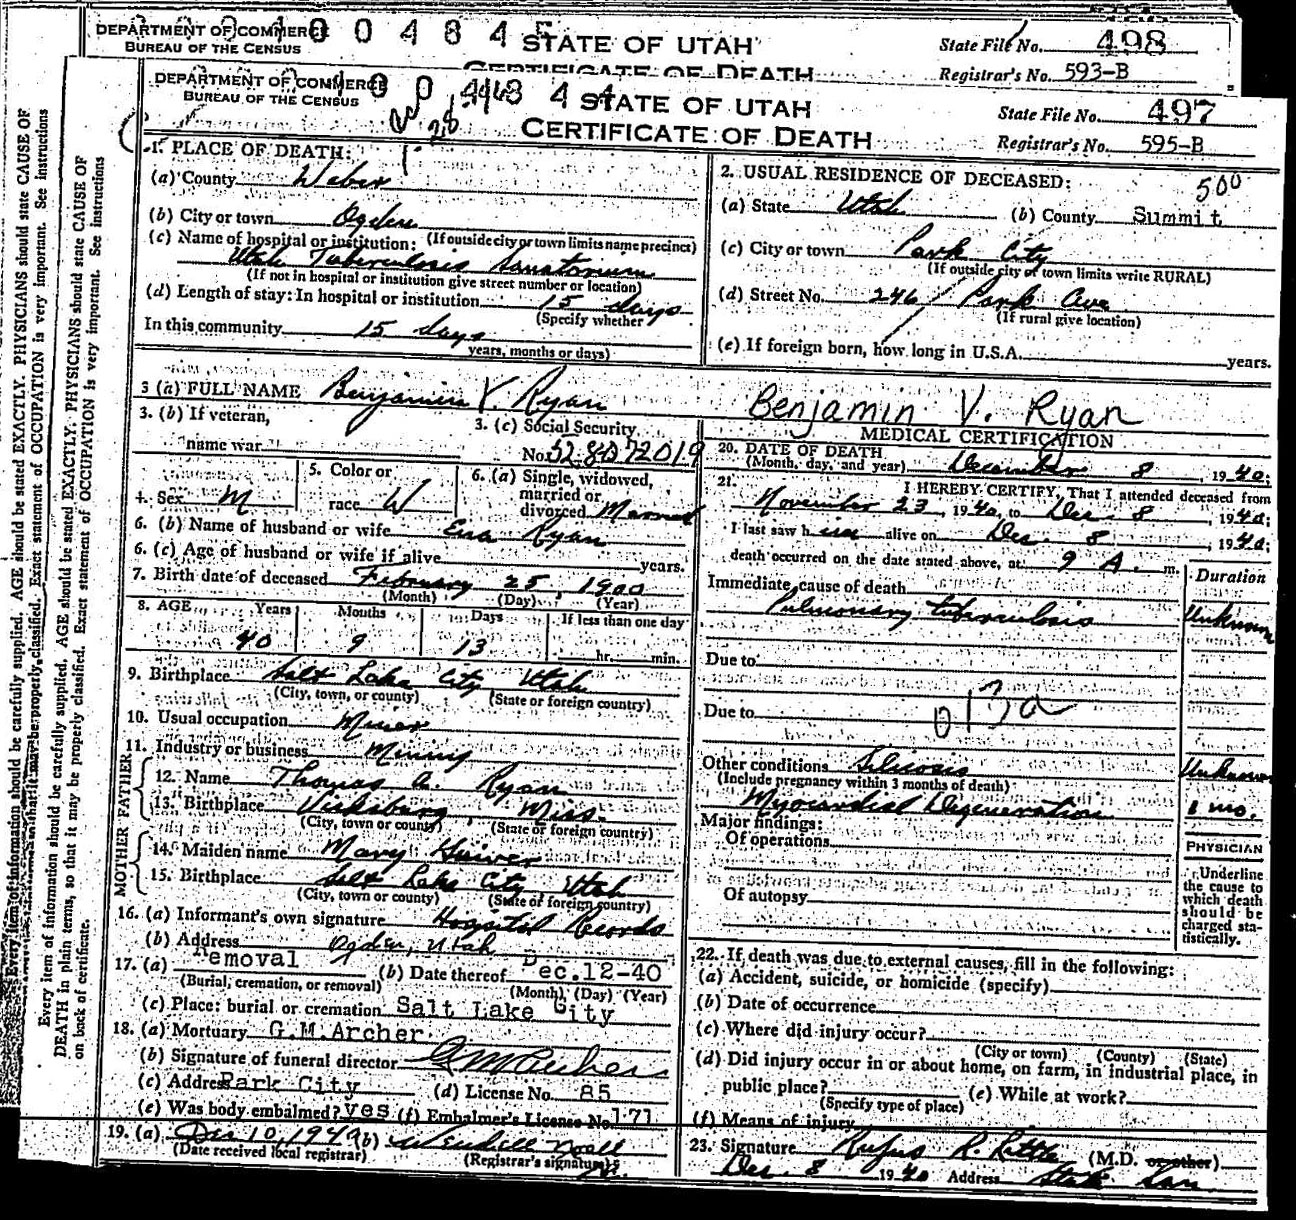 DEPARTMENT OF COMMERCE
BUREAU OF THE CENSUS
STATE OF UTAH
CERTIFICATE OF DEATH
State File No. 498
Registrar's No. 593-B
DEPARTMENT OF COMMERCE
BUREAU OF THE CENSUS
STATE OF UTAH
CERTIFICATE OF DEATH
State File No. 497
Registrar's No. 595-B
Every item of information should be carefully supplied. AGE should be stated EXACTLY. PHYSICIANS should state CAUSE OF
DEATH in plain terms, so that it may be properly classified. Exact statement of OCCUPATION is very important. See instructions
on back of certificate.
1. PLACE OF DEATH:
(a) County Weber
(b) City or town Ogden
(c) Name of hospital or institution: (If outside city or town limits name precinct)
Utah Tuberculosis Sanatorium
(If not in hospital or institution give street number or location)
(d) Length of stay: In hospital or institution 15 days
(Specify whether
In this community 15 days
years, months or days)
2. USUAL RESIDENCE OF DECEASED: 500
(a) State Utah (b) County Summit
(c) City or town Park City
(If outside city or town limits write RURAL)
(d) Street No. 246 Park Ave
(If rural give location)
(e) If foreign born, how long in U.S.A. years.
3 (a) FULL NAME Benjamin V. Ryan
Benjamin V. Ryan
3. (b) If veteran,
name war
3. (c) Social Security
No. 528072019
4. Sex M
5. Color or
race W
6. (a) Single, widowed,
married or
divorced Married
6. (b) Name of husband or wife Ryan
6. (c) Age of husband or wife if alive years.
7. Birth date of deceased February 25, 1900
(Month) (Day) (Year)
8. AGE Years Months Days If less than one day
40 9 13 hr. min.
9. Birthplace Salt Lake City Utah
(City, town, or county) (State or foreign country)
10. Usual occupation Miner
11. Industry or business Mining
FATHER
12. Name Thomas A. Ryan
13. Birthplace Vicksburg, Miss.
(City, town or county) (State or foreign country)
MOTHER
14. Maiden name Mary
15. Birthplace Salt Lake City, Utah
(City, town or county) (State or foreign country)
16. (a) Informant's own signature Hospital Records
(b) Address Ogden, Utah
17. (a) Removal (b) Date thereof Dec.12-40
(Burial, cremation, or removal) (Month) (Day) (Year)
(c) Place: burial or cremation Salt Lake City
18. (a) Mortuary G.M.Archer
(b) Signature of funeral director GM Archer
(c) Address Park City (d) License No. 85
(e) Was body embalmed? yes (f) Embalmer's License No. 171
19. (a) Dec 10, 1940 (b) Wendell Noall
(Date received local registrar) (Registrar's signature)
MEDICAL CERTIFICATION
20. DATE OF DEATH
(Month, day, and year) December 8, 1940;
21. I HEREBY CERTIFY, That I attended deceased from
November 23, 1940, to Dec. 8, 1940;
I last saw him alive on Dec. 8, 1940;
death occurred on the date stated above, at 9 A. m.
Duration
Immediate cause of death
Pulmonary tuberculosis Unknown
Due to
Due to
013a
Other conditions Silicosis Unknown
(Include pregnancy within 3 months of death)
Myocardial Degeneration 1 mo.
Major findings:
Of operations
Of autopsy
PHYSICIAN
Underline
the cause to
which death
should be
charged sta-
tistically.
22. If death was due to external causes, fill in the following:
(a) Accident, suicide, or homicide (specify)
(b) Date of occurrence
(c) Where did injury occur?
(City or town) (County) (State)
(d) Did injury occur in or about home, on farm, in industrial place, in
public place? (e) While at work?
(Specify type of place)
(f) Means of injury
23. Signature Rufus R. Little (M.D. or other)
Dec. 8 1940 Address State San.